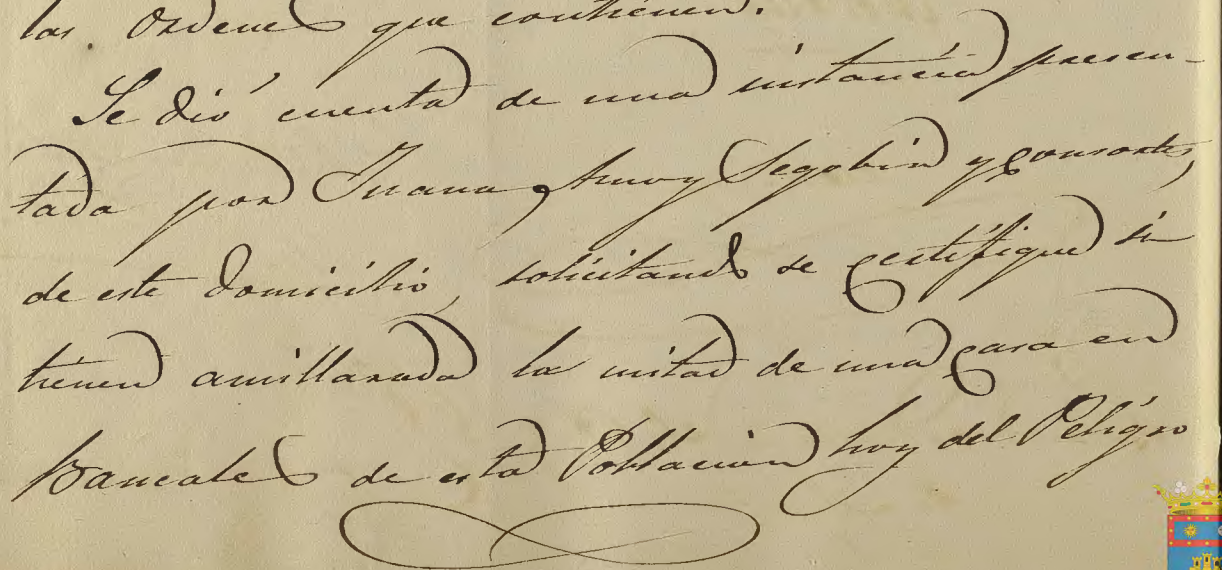 las Ordenes que contienen.
Se dió cuenta de una instancia presen-
tada por Juana Amoy Segobia y consorte,
de este domicilio, solicitando se certifique si
tienen amillarada la mitad de una casa en
Bancales de esta Poblacion hoy del Peligro